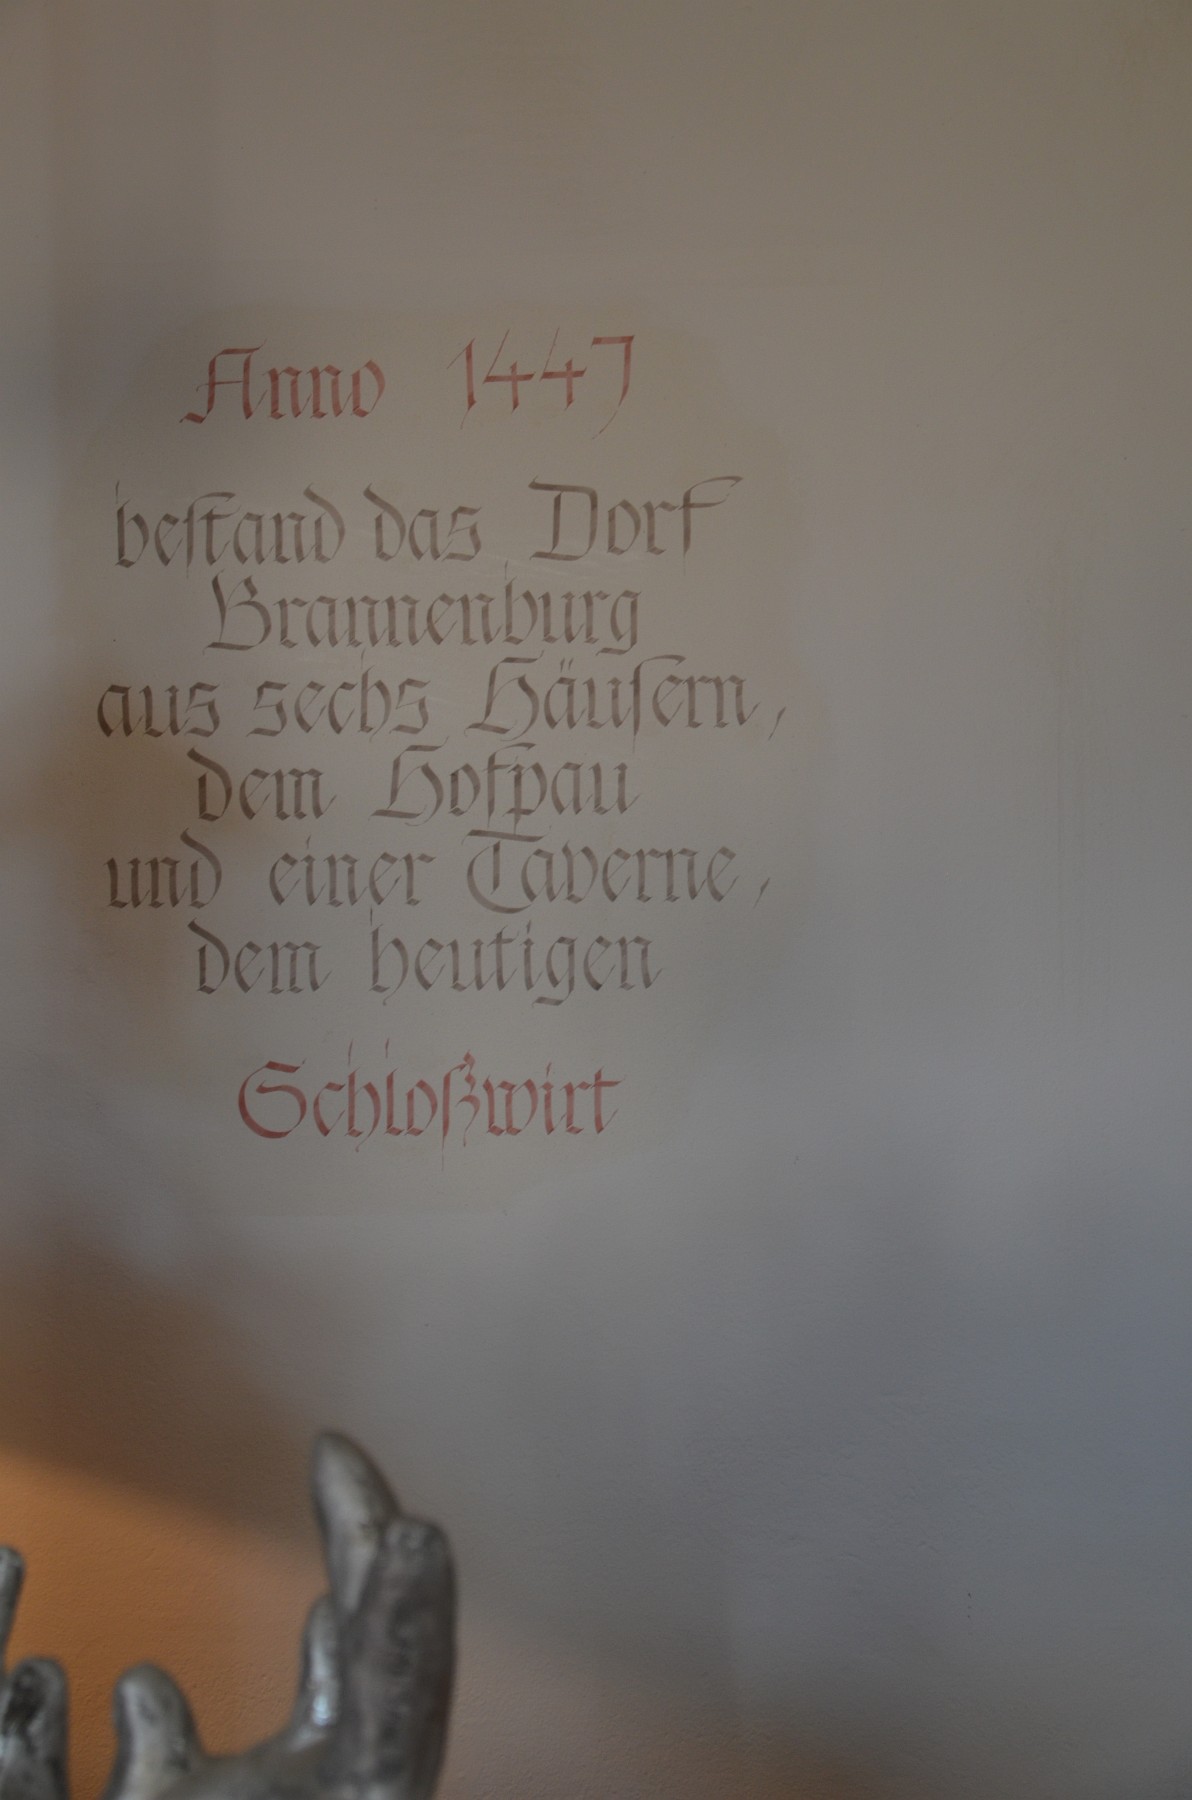 Anno 1447
beſtand das Dorf
Brannenburg
aus sechs Häuſern,
dem Hofpau
und einer Taverne,
dem heutigen
Schloßwirt